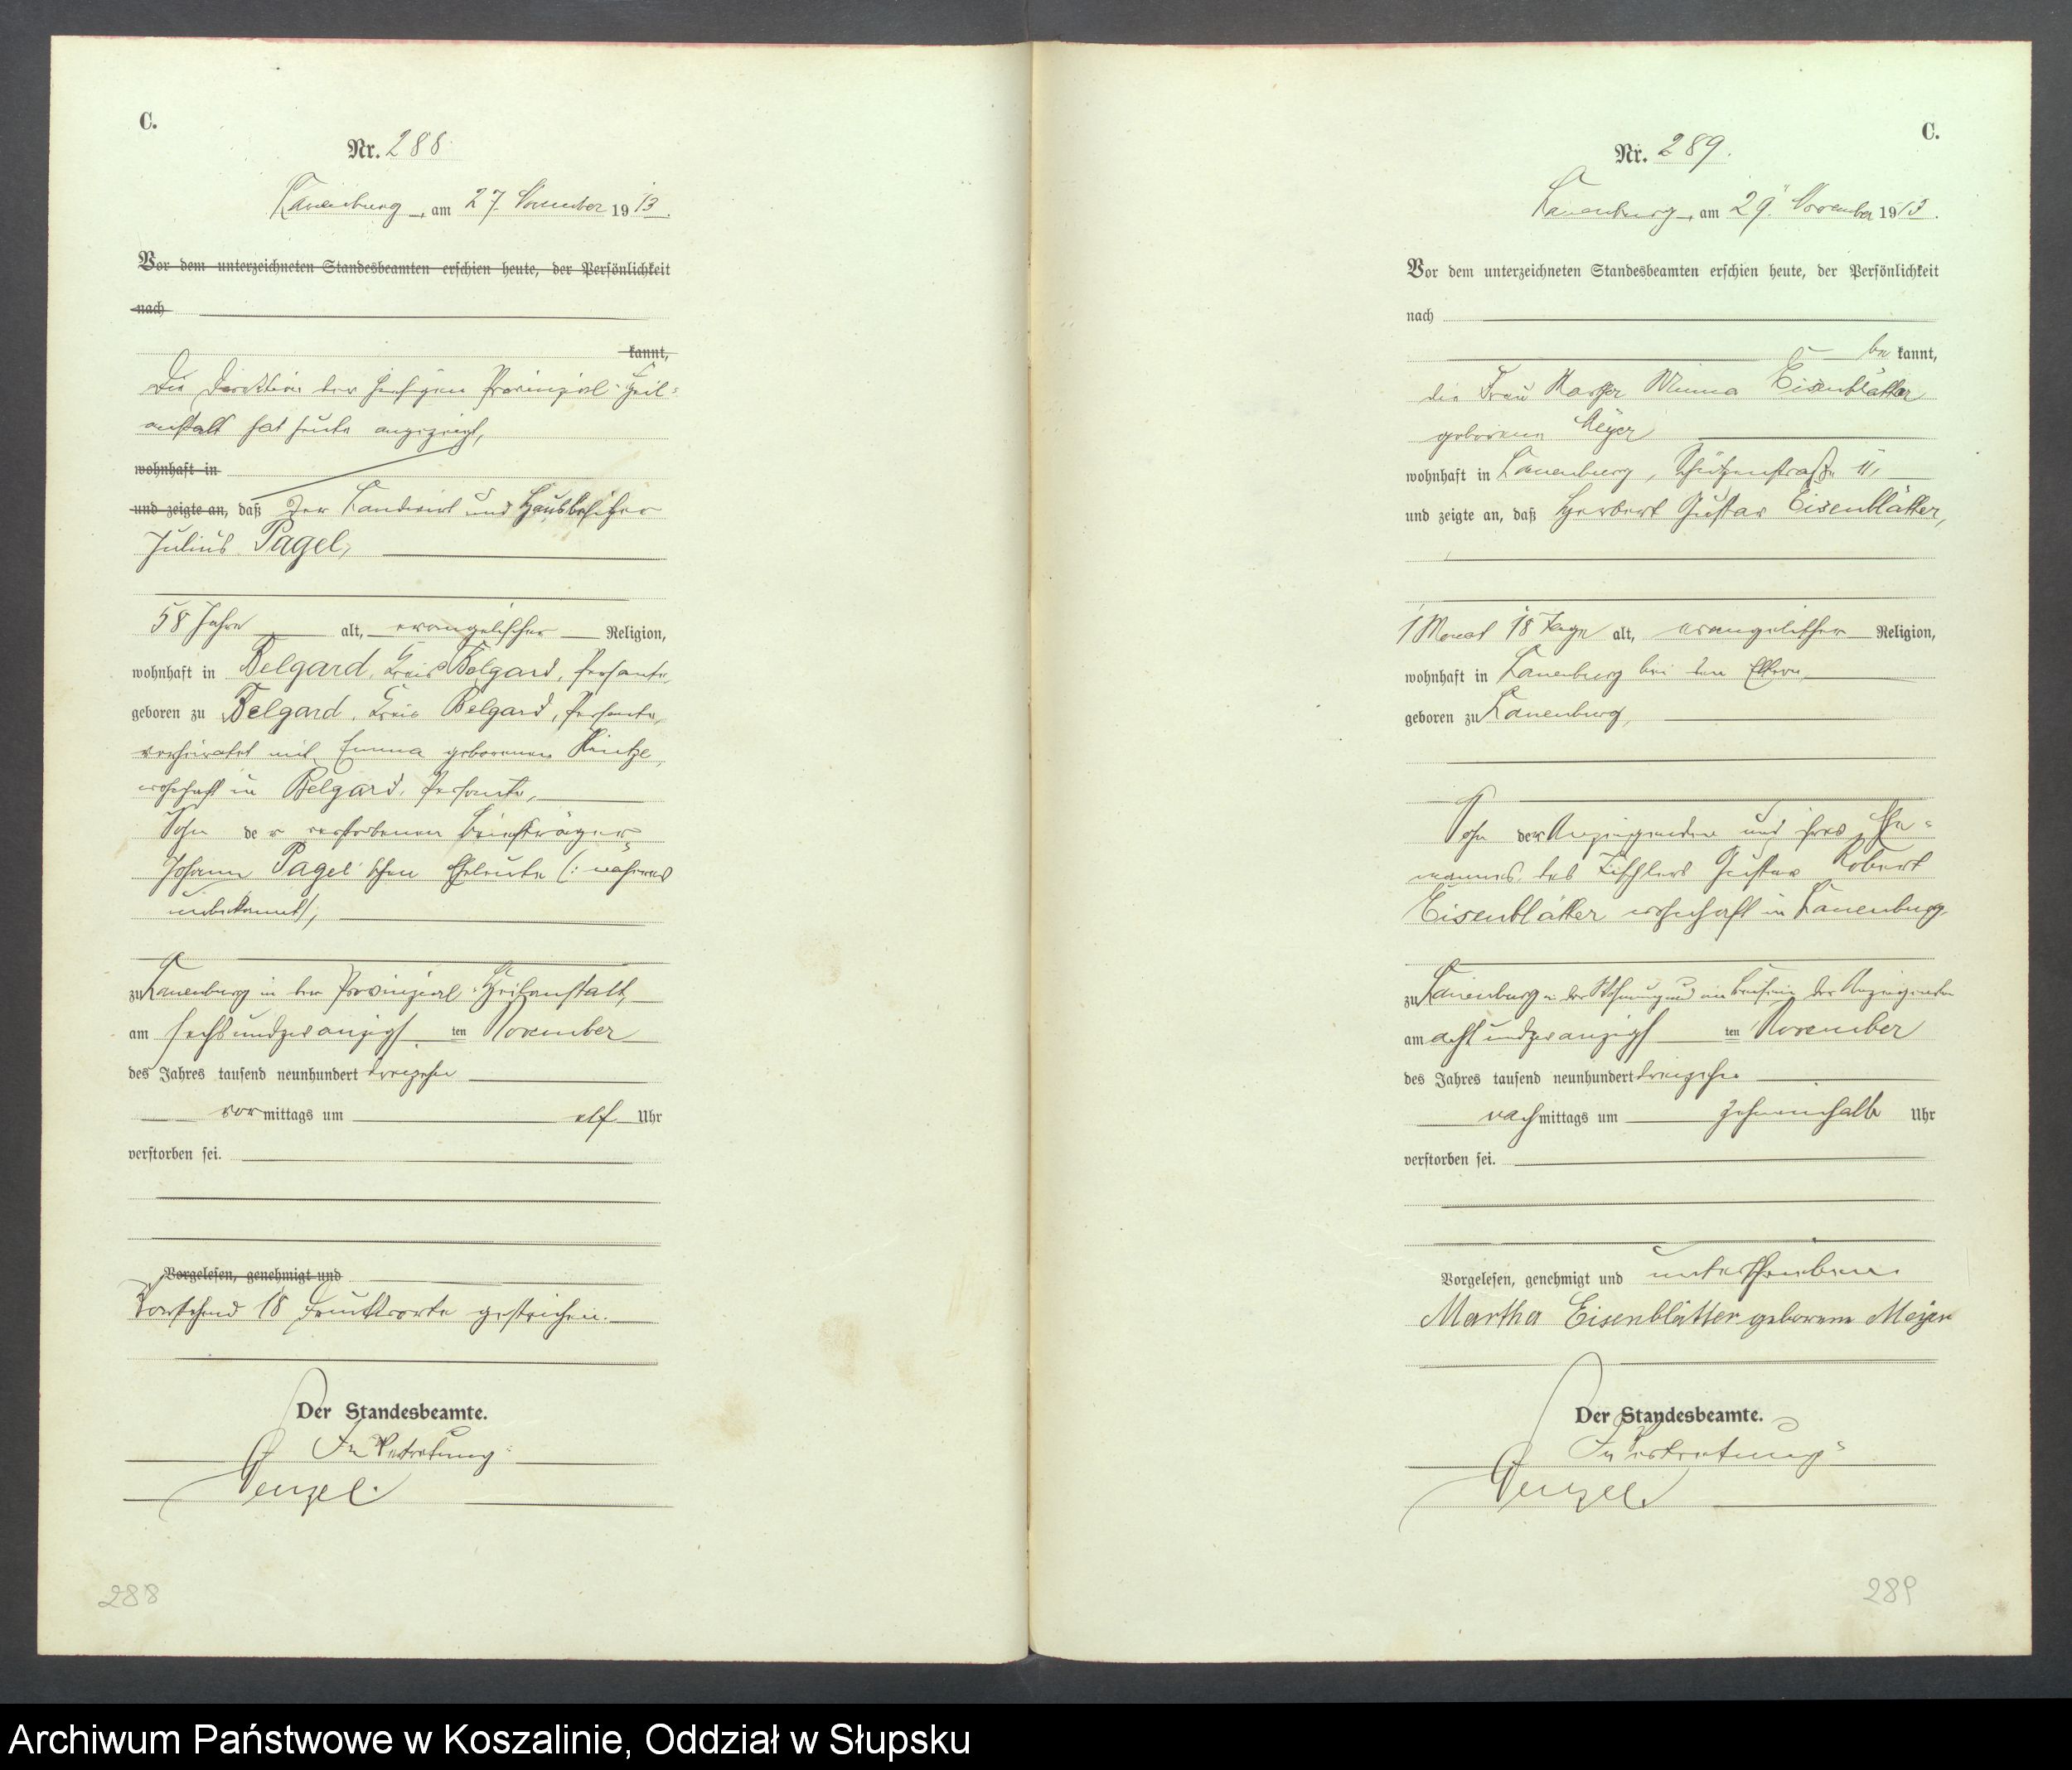 C.
Nr. 288
Lauenburg, am 27. November 1913.
Vor dem unterzeichneten Standesbeamten erschien heute, der Persönlichkeit
nach
kannt,
Die Direktion der hiesigen Provinzial-Heil-
anstalt hat heute angezeigt,
wohnhaft in
und zeigte an, daß Der Landwirt und Hausbesitzer
Julius Pagel,
58 Jahre alt, evangelischer Religion,
wohnhaft in Belgard, Kreis Belgard, Persante,
geboren zu Belgard, Kreis Belgard, Persante,
verheiratet mit Emma geborenen Hintze,
wohnhaft in Belgard, Persante,
Sohn der verstorbenen Briefträger
Johann Pagel'schen Eheleute (: näheres
unbekannt),
zu Lauenburg in der Provinzial-Heilanstalt,
am sechsundzwanzigsten November
des Jahres tausend neunhundert dreizehn
vormittags um elf Uhr
verstorben sei.
Vorgelesen, genehmigt und
Vorstehend 18 Druckworte gestrichen.
Der Standesbeamte.
In Vertretung:
Wenzel.
288
C.
Nr. 289.
Lauenburg, am 29. November 1913.
Vor dem unterzeichneten Standesbeamten erschien heute, der Persönlichkeit
nach
bekannt,
die Frau Martha Minna Eisenblätter
geborene Meyer
wohnhaft in Lauenburg, Schützenstraße 11,
und zeigte an, daß Herbert Gustav Eisenblätter,
1 Monat 18 Tage alt, evangelischer Religion,
wohnhaft in Lauenburg bei den Eltern,
geboren zu Lauenburg,
Sohn der Anzeigenden und ihres Ehe-
mannes, des Tischlers Gustav Robert
Eisenblätter wohnhaft in Lauenburg
zu Lauenburg in der Wohnung und im Beisein der Anzeigenden
am achtundzwanzigsten November
des Jahres tausend neunhundert dreizehn
nachmittags um zehneinhalb Uhr
verstorben sei.
Vorgelesen, genehmigt und unterschrieben.
Martha Eisenblätter geborene Meyer
Der Standesbeamte.
In Vertretung:
Wenzel.
289
Archiwum Państwowe w Koszalinie, Oddział w Słupsku